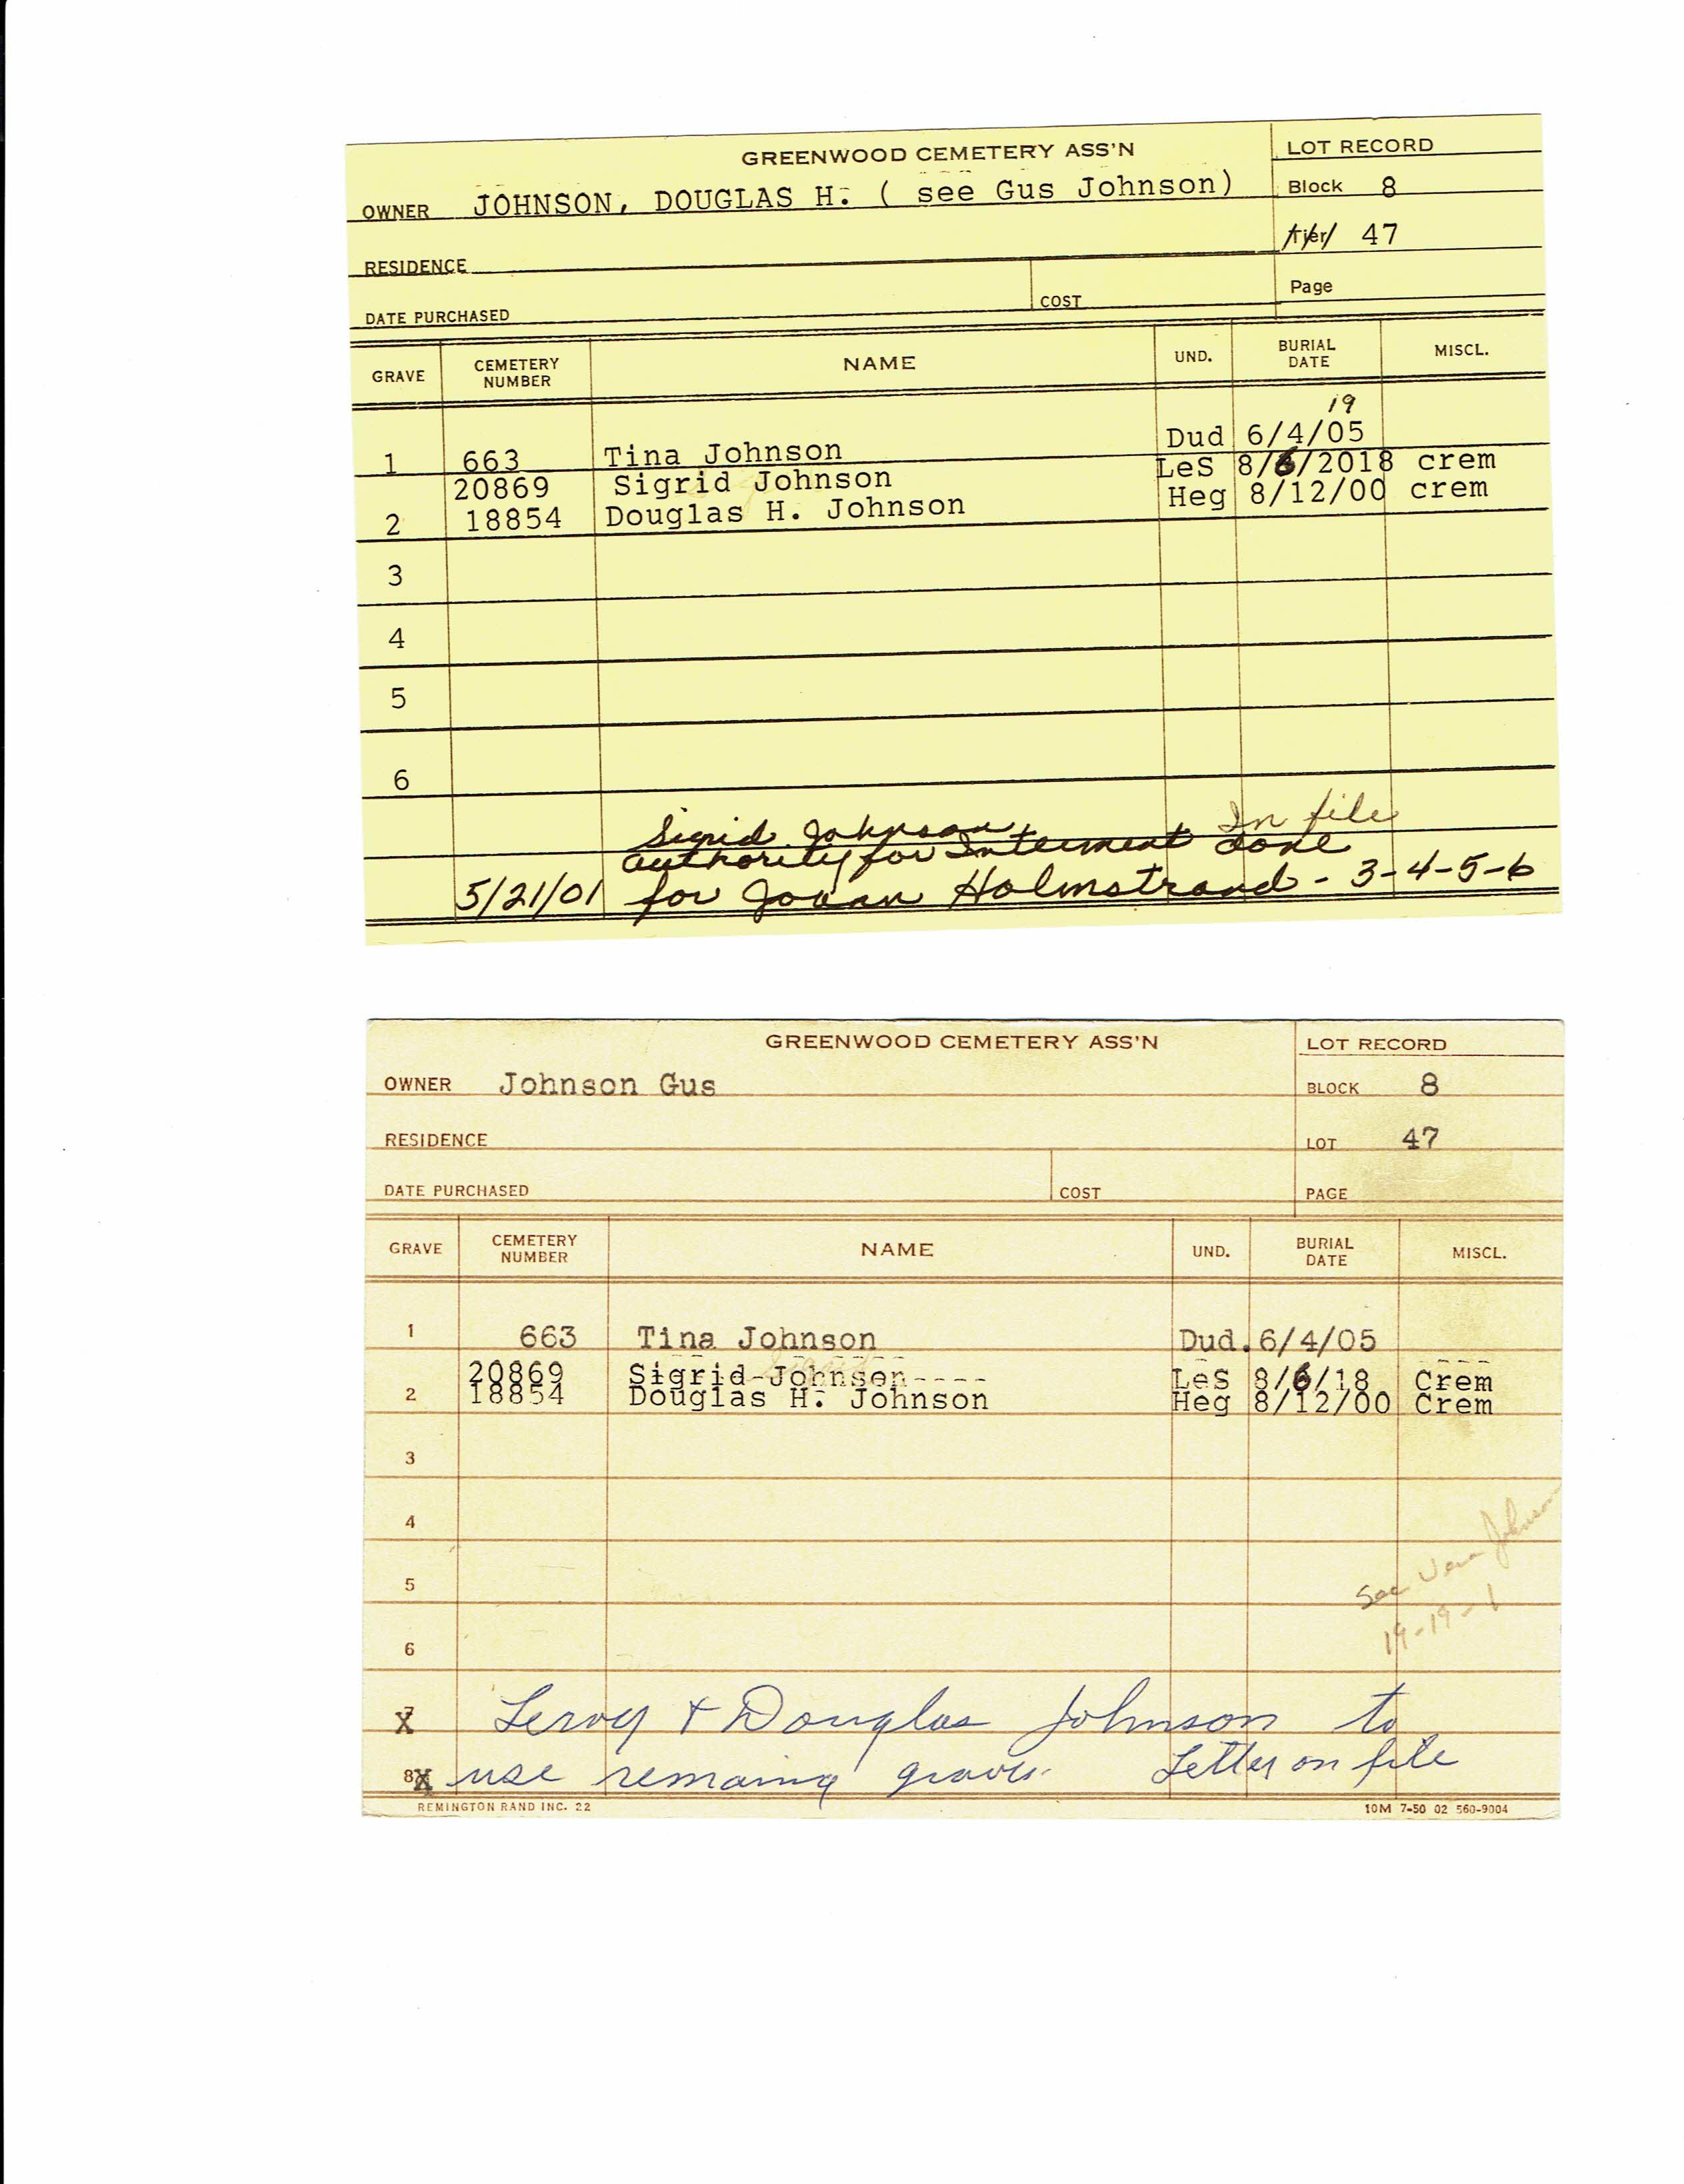 GREENWOOD CEMETERY ASS'N LOT RECORD
OWNER JOHNSON, DOUGLAS H. ( see Gus Johnson) Block 8
Tier 47
RESIDENCE
Page
DATE PURCHASED COST
GRAVE CEMETERY NUMBER NAME UND. BURIAL DATE MISCL.
19
1 663 Tina Johnson Dud 6/4/05
20869 Sigrid Johnson LeS 8/6/2018 crem
2 18854 Douglas H. Johnson Heg 8/12/00 crem
3
4
5
6
Sigrid Johnson In file
authority for Interment done
5/21/01 for Holmstrand - 3-4-5-6
GREENWOOD CEMETERY ASS'N LOT RECORD
OWNER Johnson Gus BLOCK 8
RESIDENCE LOT 47
DATE PURCHASED COST PAGE
GRAVE CEMETERY NUMBER NAME UND. BURIAL DATE MISCL.
1 663 Tina Johnson Dud. 6/4/05
20869 Sigrid-Johnson---- LeS 8/6/18 Crem
2 18854 Douglas H. Johnson Heg 8/12/00 Crem
3
4
5
See Johnson
19-19-1
6
7 Leroy + Douglas Johnson to
8 use remaing graves. Letter on file
REMINGTON RAND INC. 22 10M 7-50 02 560-9004